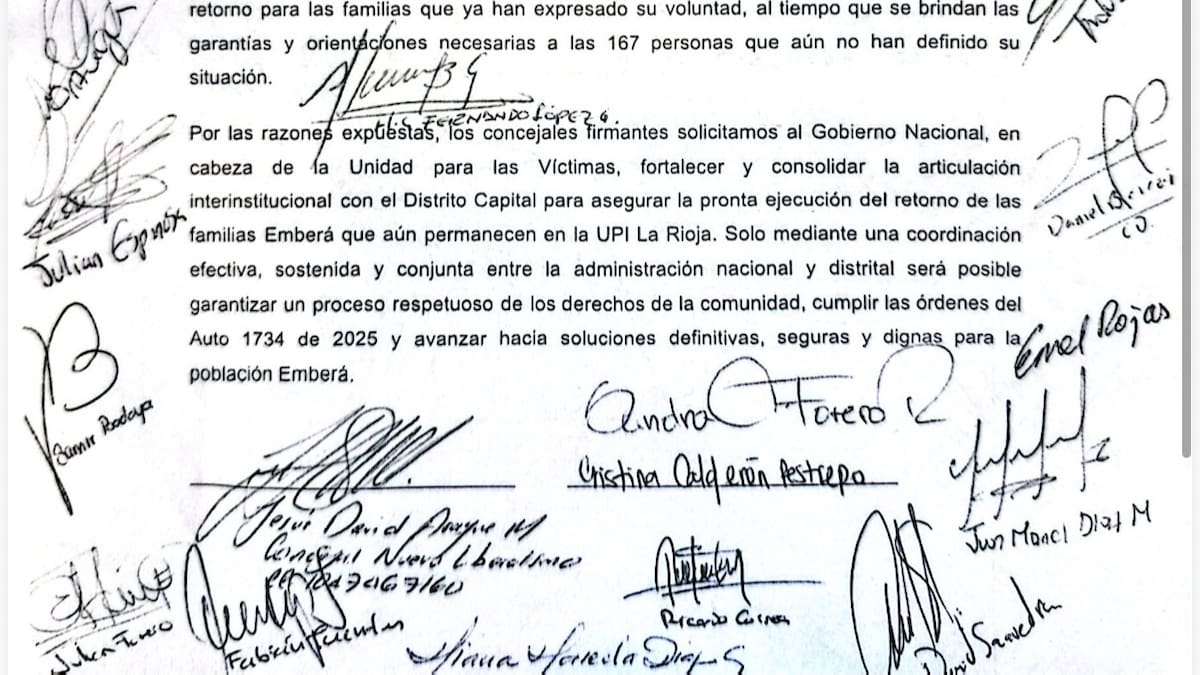 retorno para las familias que ya han expresado su voluntad, al tiempo que se brindan las
garantías y orientaciones necesarias a las 167 personas que aún no han definido su
situación.
FERNANDO LÓPEZ G.
Por las razones expuestas, los concejales firmantes solicitamos al Gobierno Nacional, en
cabeza de la Unidad para las Víctimas, fortalecer y consolidar la articulación
interinstitucional con el Distrito Capital para asegurar la pronta ejecución del retorno de las
familias Emberá que aún permanecen en la UPI La Rioja. Solo mediante una coordinación
efectiva, sostenida y conjunta entre la administración nacional y distrital será posible
garantizar un proceso respetuoso de los derechos de la comunidad, cumplir las órdenes del
Auto 1734 de 2025 y avanzar hacia soluciones definitivas, seguras y dignas para la
población Emberá.
Julian Espinosa
Daniel
CD.
Emel Rojas
Samir Bedoya
Andrés Forero R
Cristina Calderón Restrepo
Jesús David Araque M
Concejal Nuevo Liberalismo
Juan Manuel Diaz M
Julian Forero
Fabián Fuentes
Ricardo Correa
Diana Marcela Diago G
David Saavedra